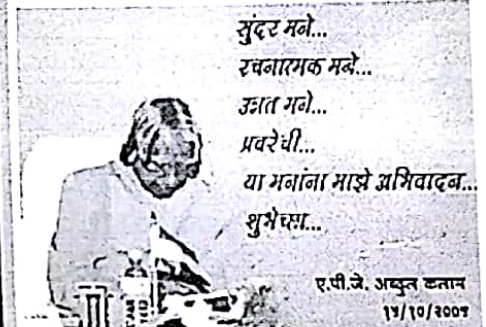 सुंदर मने...
रचनात्मक मने...
उन्नत मने...
प्रवरेची...
या मनांना माझे अभिवादन...
शुभेच्छा...
ए.पी.जे. अब्दुल कलाम
१५/१०/२००१